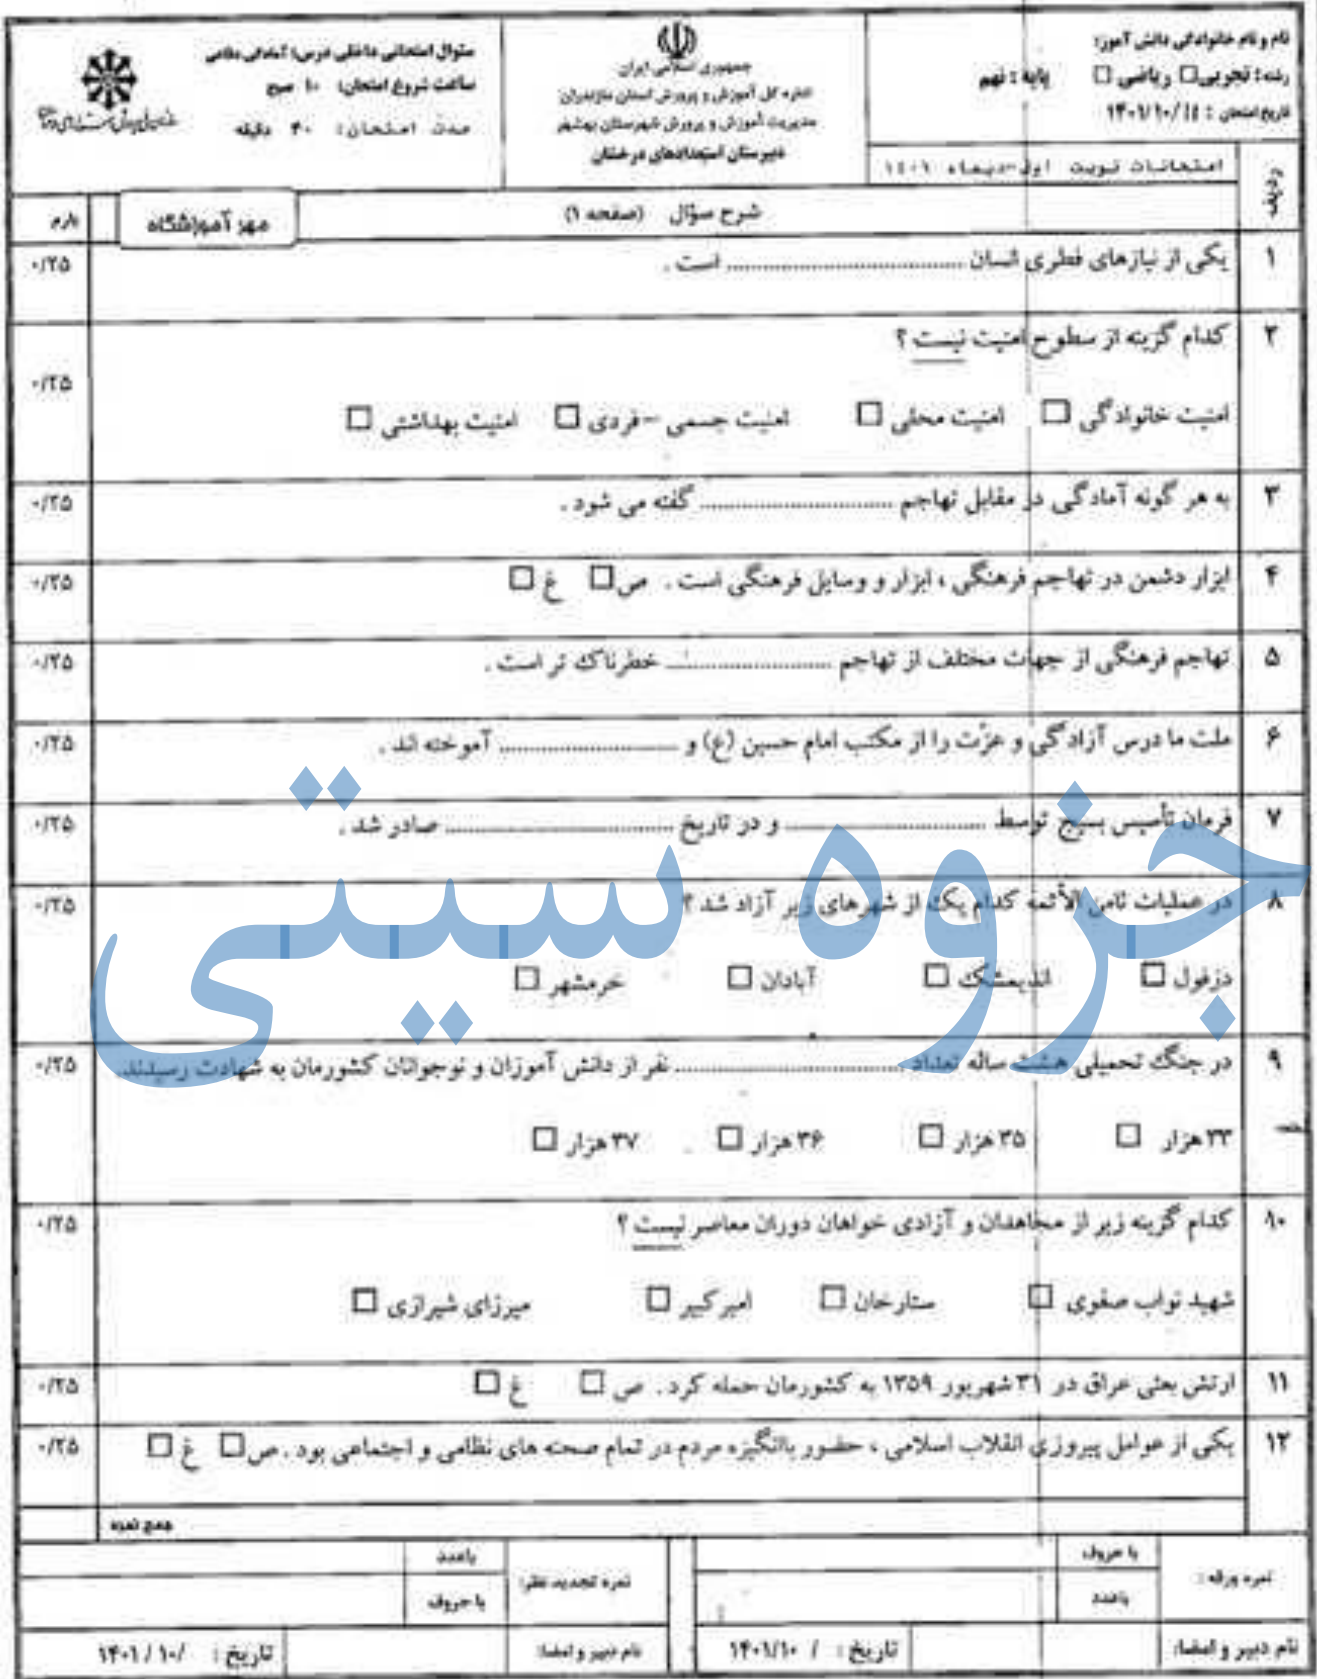 نام و نام خانوادگی دانش آموز:
رشته: تجربی□ ریاضی □ پایه: نهم
تاریخ امتحان: ۱۴۰۱/۱۰/۱٤
جمهوری اسلامی ایران
اداره کل آموزش و پرورش استان مازندران
مدیریت آموزش و پرورش شهرستان بهشهر
دبیرستان استعدادهای درخشان
سئوال امتحانی داخلی درس: آمادگی دفاعی
ساعت شروع امتحان: ۱۰ صبح
مدت امتحان: ۴۰ دقیقه
امتحانات نوبت اول-دیماه ۱٤۰۱
ردیف
شرح سؤال (صفحه ۱)
مهر آموزشگاه
بارم
۱ یکی از نیازهای فطری انسان .................................. است . ۰/۲۵
۲ کدام گزینه از سطوح امنیت نیست ؟ ۰/۲۵
امنیت خانوادگی □ امنیت محلی □ امنیت جسمی -فردی □ امنیت بهداشتی □
۳ به هر گونه آمادگی در مقابل تهاجم ........................... گفته می شود . ۰/۲۵
۴ ابزار دشمن در تهاجم فرهنگی ، ابزار و وسایل فرهنگی است . ص□ غ □ ۰/۲۵
۵ تهاجم فرهنگی از جهات مختلف از تهاجم ....................... خطرناک تر است . ۰/۲۵
۶ ملت ما درس آزادگی و عزّت را از مکتب امام حسین (ع) و ......................... آموخته اند . ۰/۲۵
۷ فرمان تأسیس بسیج توسط ........................ و در تاریخ ................................ صادر شد . ۰/۲۵
۸ در عملیات ثامن الأئمه کدام یک از شهرهای زیر آزاد شد ؟ ۰/۲۵
دزفول □ اندیمشک □ آبادان □ خرمشهر □
۹ در جنگ تحمیلی هشت ساله تعداد ................................ نفر از دانش آموزان و نوجوانان کشورمان به شهادت رسیدند. ۰/۲۵
۳۳ هزار □ ۳۵ هزار □ ۳۶ هزار □ ۳۷ هزار □
۱۰ کدام گزینه زیر از مجاهدان و آزادی خواهان دوران معاصر نیست ؟ ۰/۲۵
شهید نواب صفوی □ ستارخان □ امیرکبیر □ میرزای شیرازی □
۱۱ ارتش بعثی عراق در ۳۱ شهریور ۱۳۵۹ به کشورمان حمله کرد . ص □ غ □ ۰/۲۵
۱۲ یکی از عوامل پیروزی انقلاب اسلامی ، حضور باانگیزه مردم در تمام صحنه های نظامی و اجتماعی بود . ص□ غ □ ۰/۲۵
جمع نمره
نمره ورقه: با حروف
باعدد
نمره تجدید نظر: باعدد
با حروف
نام دبیر و امضا: تاریخ: / ۱۴۰۱/۱۰
نام دبیر و امضا: تاریخ: /۱۴۰۱/۱۰
جزوه سیتی